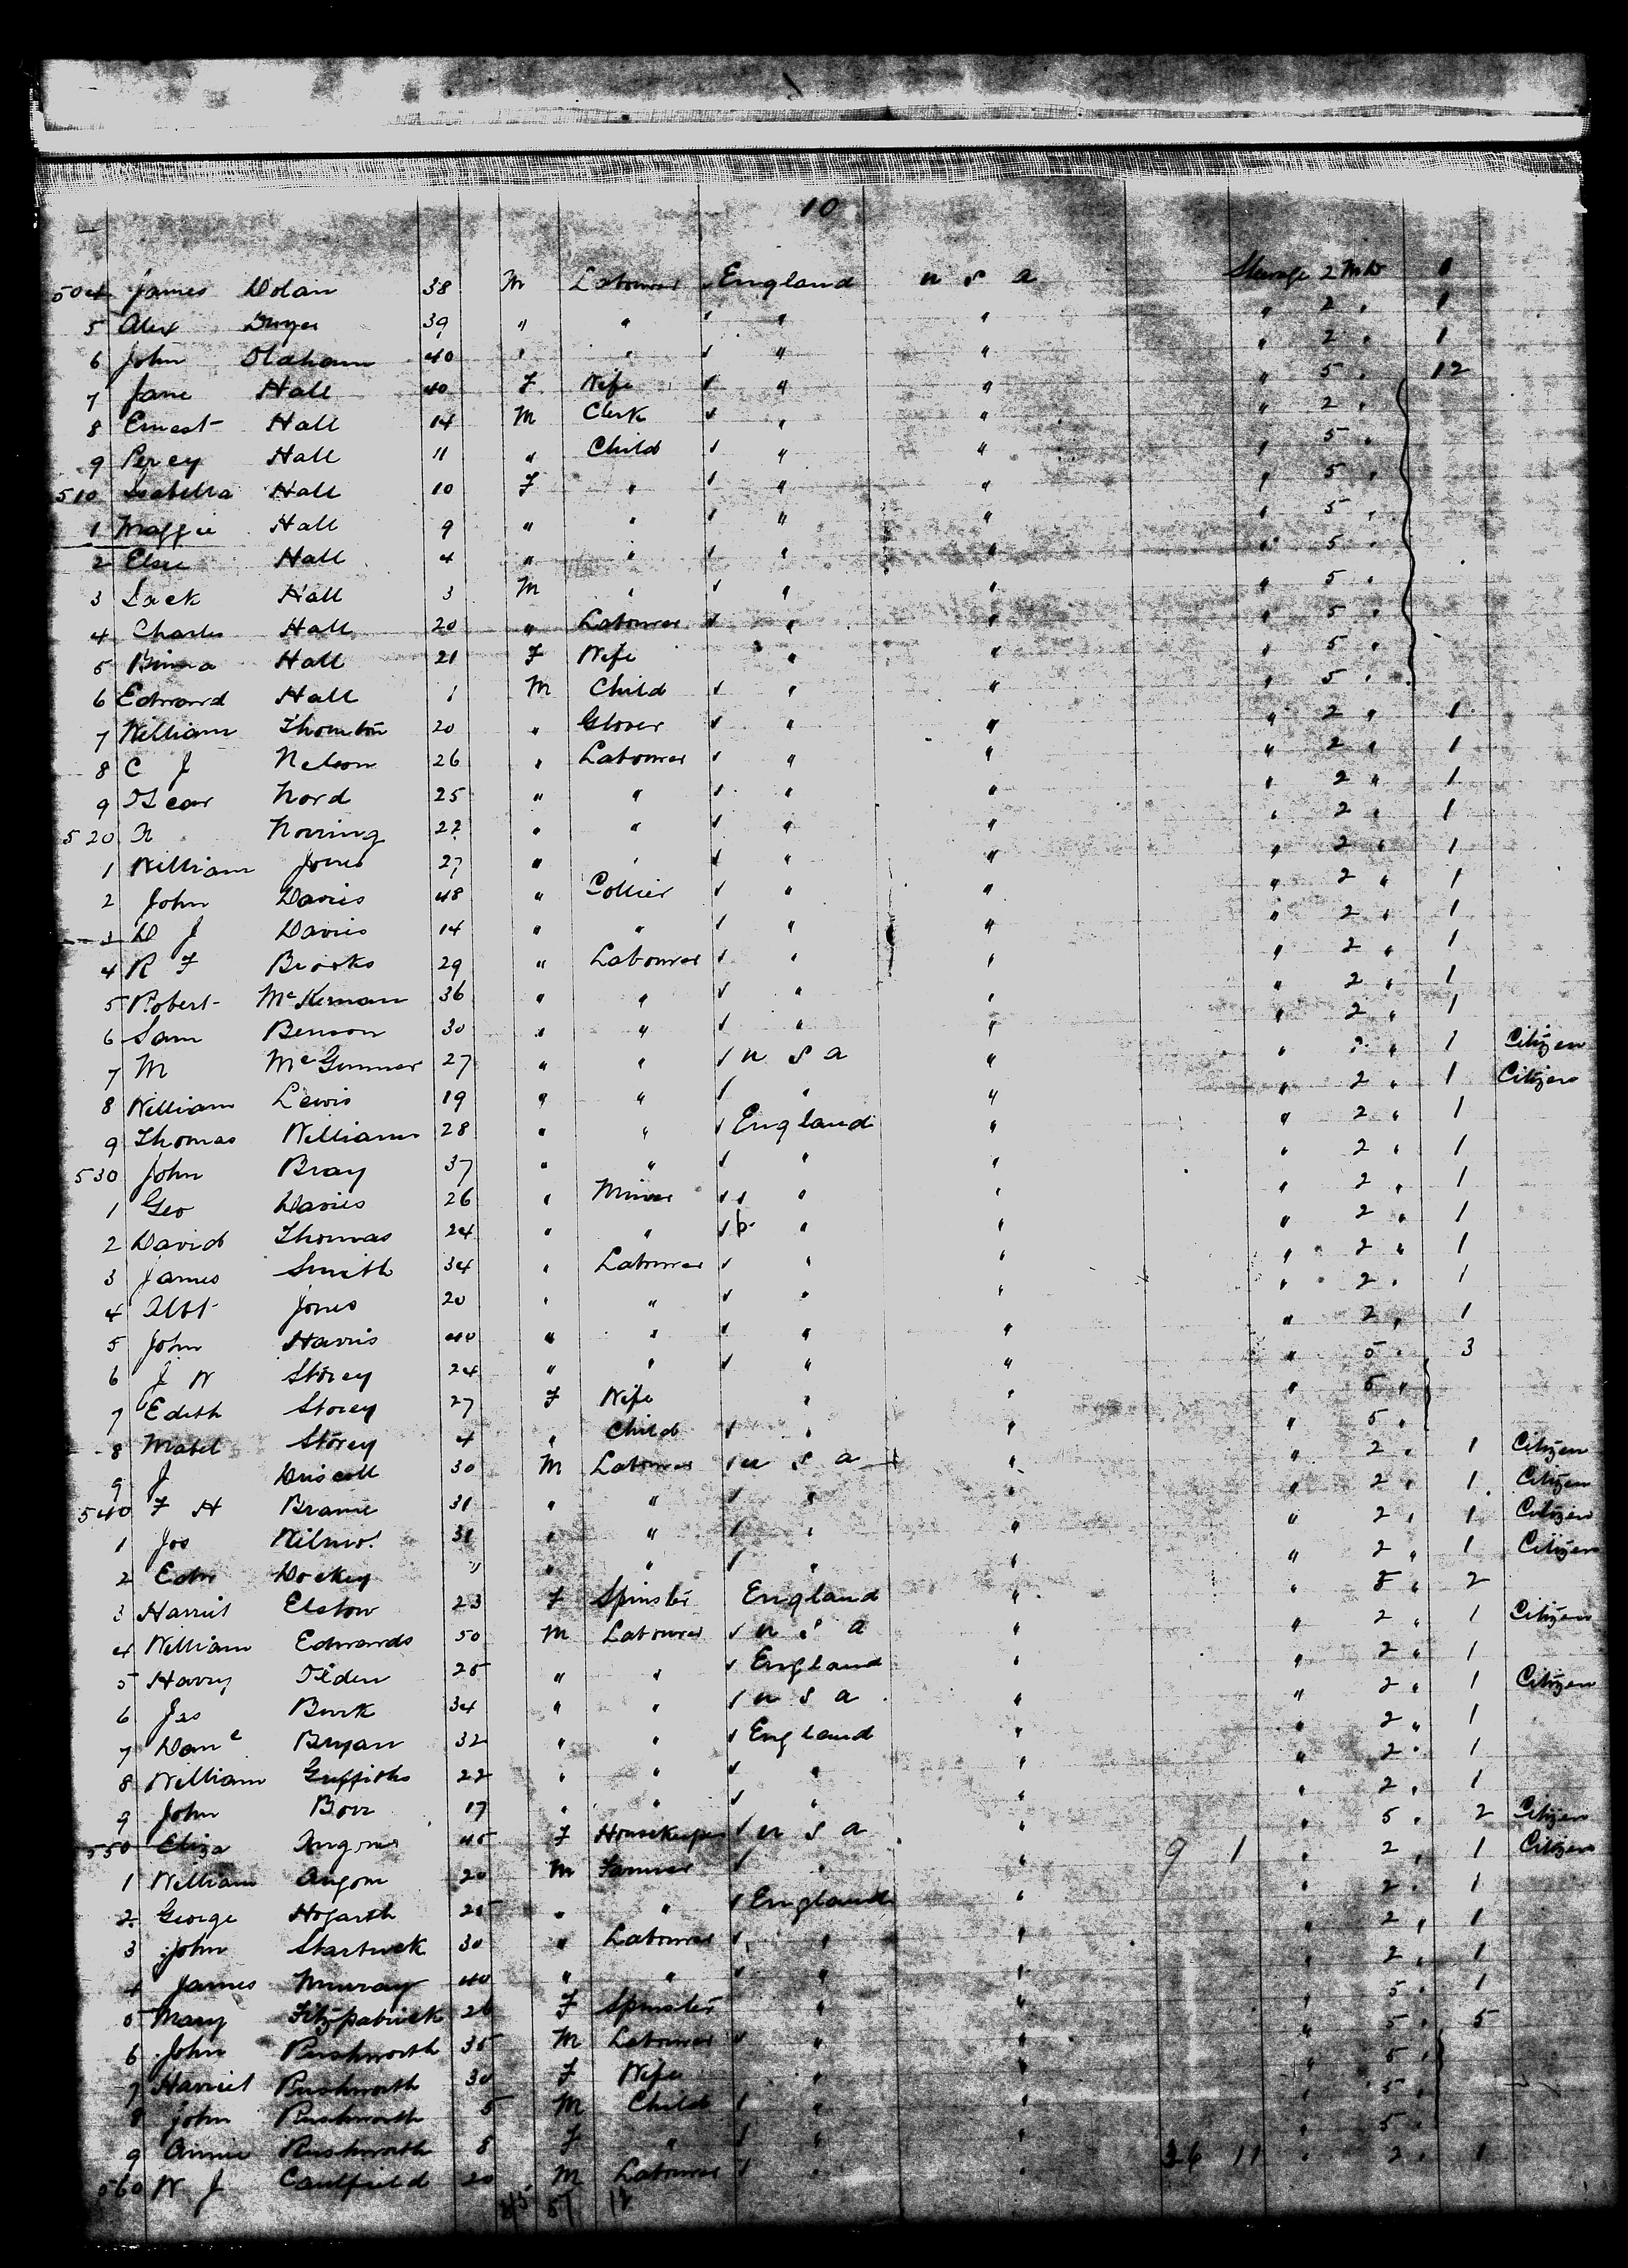 10
504 James Dolan 38 M Labourer England U S A Steerage 2 Mid 1
5 Alex Dwyer 39 " " " " " 2 " 1
6 John Oldham 40 " " " " " 2 " 1
7 Jane Hall 40 F Wife " " " 5 " 12
8 Ernest Hall 14 M Clerk " " " 2 "
9 Percy Hall 11 " Child " " " 5 "
510 Isabella Hall 10 F " " " " 5 "
1 Maggie Hall 9 " " " " " 5 "
2 Elsie Hall 4 " " " " " 5 "
3 Jack Hall 3 M " " " " 5 "
4 Charles Hall 20 " Labourer " " " 5 "
5 Hall 21 F Wife " " " 5 "
6 Edward Hall 1 M Child " " " 5 "
7 William Thornton 20 " Glover " " " 2 " 1
8 C J Nelson 26 " Labourer " " " 2 " 1
9 Oscar Nord 25 " " " " " 2 " 1
520 Norring 22 " " " " " 2 " 1
1 William Jones 27 " " " " " 2 " 1
2 John Davies 48 " Collier " " " 2 " 1
3 D J Davies 14 " " " " " 2 " 1
4 R F Brooks 29 " Labourer " " " 2 " 1
5 Robert McKernan 36 " " " " " 2 " 1
6 Sam Benson 30 " " " " " 2 " 1
7 M 27 " " U S A " " 2 " 1 Citizen
8 William Lewis 19 " " " " " 2 " 1 Citizen
9 Thomas Williams 28 " " England " " 2 " 1
530 John Bray 37 " " " " " 2 " 1
1 Geo Davies 26 " Miner " " " 2 " 1
2 David Thomas 24 " " " " " 2 " 1
3 James Smith 34 " Labourer " " " 2 " 1
4 Albt Jones 20 " " " " " 2 " 1
5 John Harris 40 " " " " " 2 " 1
6 J W Storey 24 " " " " " 5 " 3
7 Edith Storey 27 F Wife " " " 5 "
8 Mabel Storey 4 " Child " " " 5 "
9 J Driscoll 30 M Labourer U S A " " 2 " 1 Citizen
540 F H Brame 31 " " " " " 2 " 1 Citizen
1 Jos 31 " " " " " 2 " 1 Citizen
2 Edw Dockey " " " " " " 2 " 1 Citizen
3 Harriet Elston 23 F Spinster England " " 5 " 2
4 William Edwards 50 M Labourer U S A " " 2 " 1 Citizen
5 Harry 25 " " England " " 2 " 1
6 Jas Burk 34 " " U S A " " 2 " 1 Citizen
7 Danl Bryan 32 " " England " " 2 " 1
8 William Griffiths 22 " " " " " 2 " 1
9 John 17 " " " " " 2 " 1
550 Eliza 45 F Housekeeper U S A " " 5 " 2 Citizen
1 William 20 M Farmer " " 9 1 " 2 " 1 Citizen
2 George Hogarth 25 " " England " " 2 " 1
3 John 30 " Labourer " " " 2 " 1
4 James Murray 40 " " " " " 2 " 1
5 Mary Fitzpatrick 26 F Spinster " " " 5 " 1
6 John Rushworth 35 M Labourer " " " 5 " 5
7 Harriet Rushworth 30 F Wife " " " 5 "
8 John Rushworth 5 M Child " " " 5 "
9 Annie Rushworth 8 F " " " " 5 "
560 W J Caulfield 20 M Labourer " " 26 11 " 2 " 1